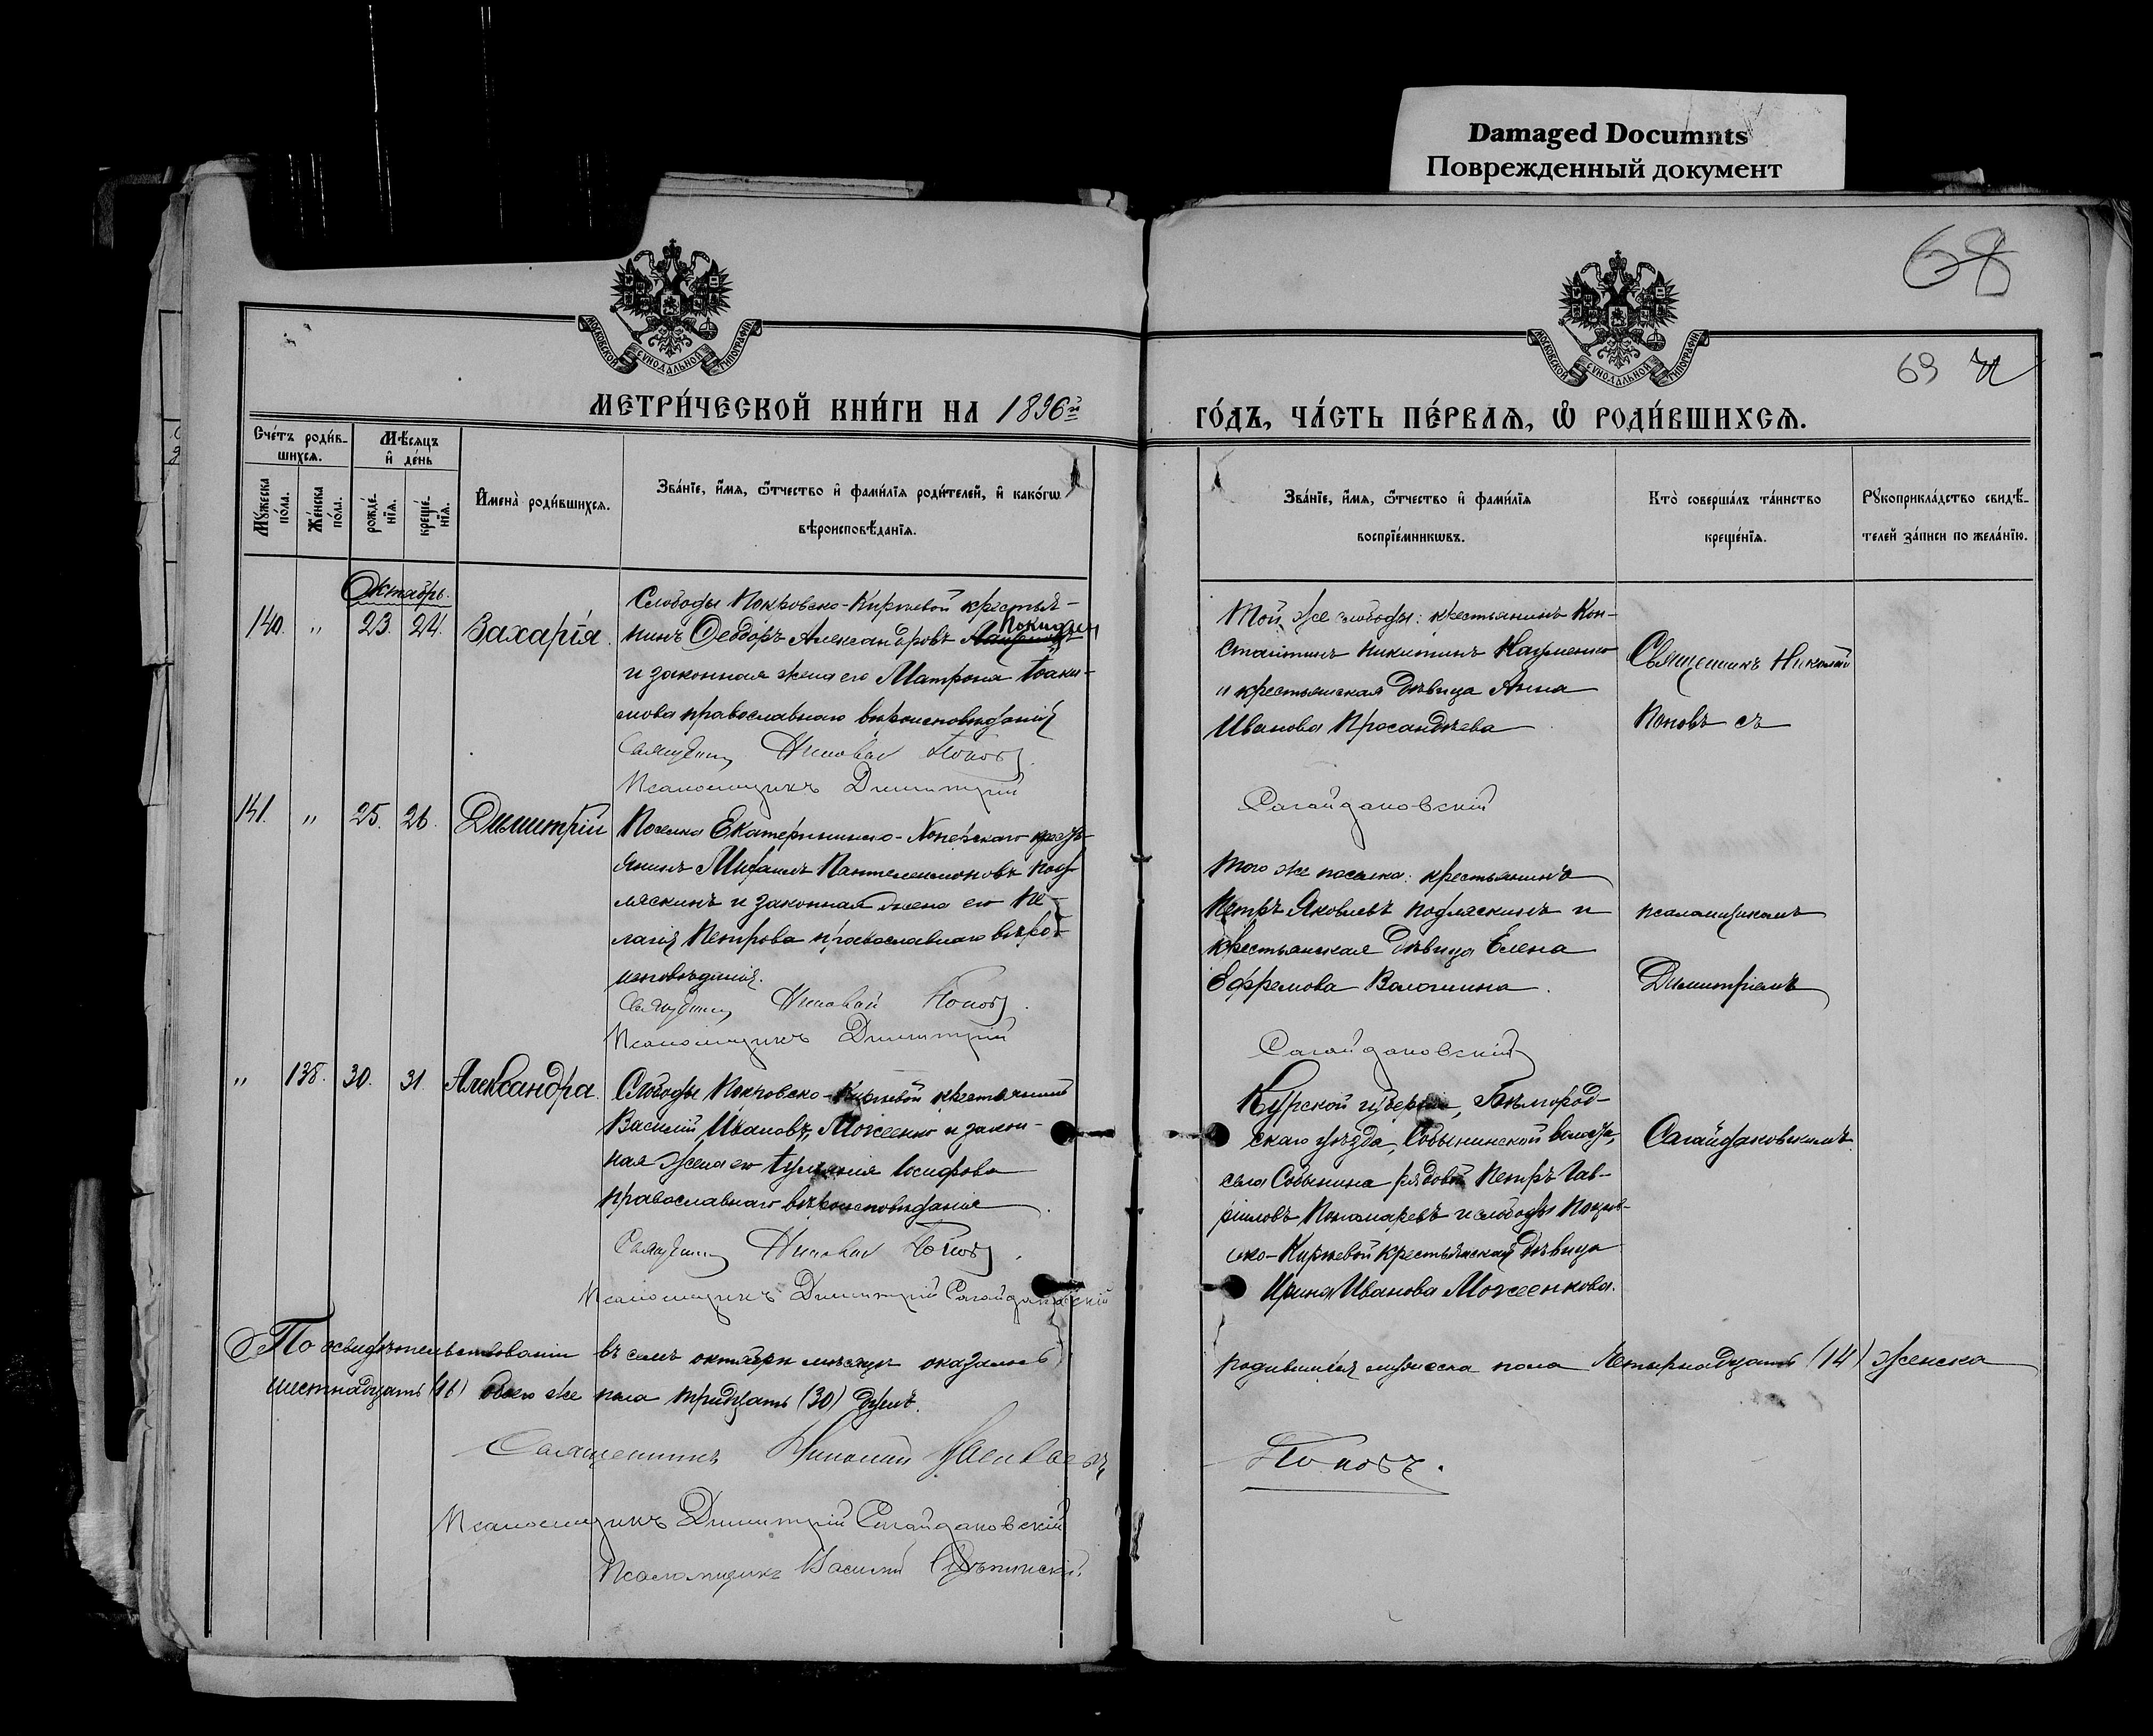 Damaged Documnts
Поврежденный документ
68
69
МОСКОВСКОЙ СѴНОДАЛЬНОЙ ТИПОГРАФІИ
МОСКОВСКОЙ СѴНОДАЛЬНОЙ ТИПОГРАФІИ
МЕТРИ́ЧЕСКОЙ КНИ́ГИ НА 1896й
ГО́ДЪ, ЧА́СТЬ ПЕ́РВАЯ, Ѡ РОДИ́ВШИХСЯ.
Сче́тъ роди́в-
шихся.
Мѣ́сяцъ
и де́нь
Му́жеска по́ла.
Же́нска по́ла.
рожде́-
нїя.
креще́-
нїя.
Имена̀ роди́вшихся.
Зва́нїе, и́мя, ѻ́тчество и фами́лїя роди́телей, и како́гѡ
вѣроисповѣ́данїя.
Зва́нїе, и́мя, ѻ́тчество и фами́лїя
воспрїе́мникѡвъ.
Кто̀ соверша́лъ та́инство
креще́нїя.
Рꙋкоприкла́дство свидѣ́-
телей за́писи по жела́нїю.
Октябрь.
140. " 23. 24. Захарія.
Слободы Покровско-Киреевой крестья-
нинъ Ѳеодоръ Александровъ
и законная жена его Матрона Іоаки-
мова православнаго вѣроисповѣданія
Священникъ Николай Поповъ.
Псаломщикъ Димитрій
Той же слободы: крестьянинъ Кон-
стантинъ Никитинъ Науменко
и крестьянская дѣвица Анна
Иванова
Сагайдаковскій
Священникъ Николай
Поповъ съ
141. " 25. 26. Димитрій
Поселка Екатериновско-Хопёрскаго кресть-
янинъ Михаилъ Пантелеимоновъ Под-
мяскинъ и законная жена его Пе-
лагія Петрова православнаго вѣро-
исповѣданія.
Священникъ Николай Поповъ.
Псаломщикъ Димитрій
Того же поселка: крестьянинъ
Петръ Яковлевъ Подмяскинъ и
крестьянская дѣвица Елена
Ефремова Волошина.
Сагайдаковскій
псаломщикомъ
Димитріемъ
" 138. 30. 31. Александра.
Слободы Покровско-Киреевой крестьянинъ
Василій Ивановъ Можеенко и закон-
ная жена его Іуліанія Іосифова
православнаго вѣроисповѣданія.
Священникъ Николай Поповъ.
Псаломщикъ Димитрій Сагайдаковскій
Курской губерніи, Бѣлгород-
скаго уѣзда, Собынинской волости,
села Собынина рядовой Петръ Гав-
ріиловъ Пономаревъ и слободы Покров-
ско-Киреевой крестьянская дѣвица
Ирина Иванова Можеенкова.
Сагайдаковскимъ.
По освидѣтельствованіи въ семъ октябрѣ мѣсяцѣ оказалось родившихся мужеска пола четырнадцать (14) женска
шестнадцать (16) обоего же пола тридцать (30) душъ.
Священникъ Николай Поповъ.
Псаломщикъ Димитрій Сагайдаковскій
Псаломщикъ Василій